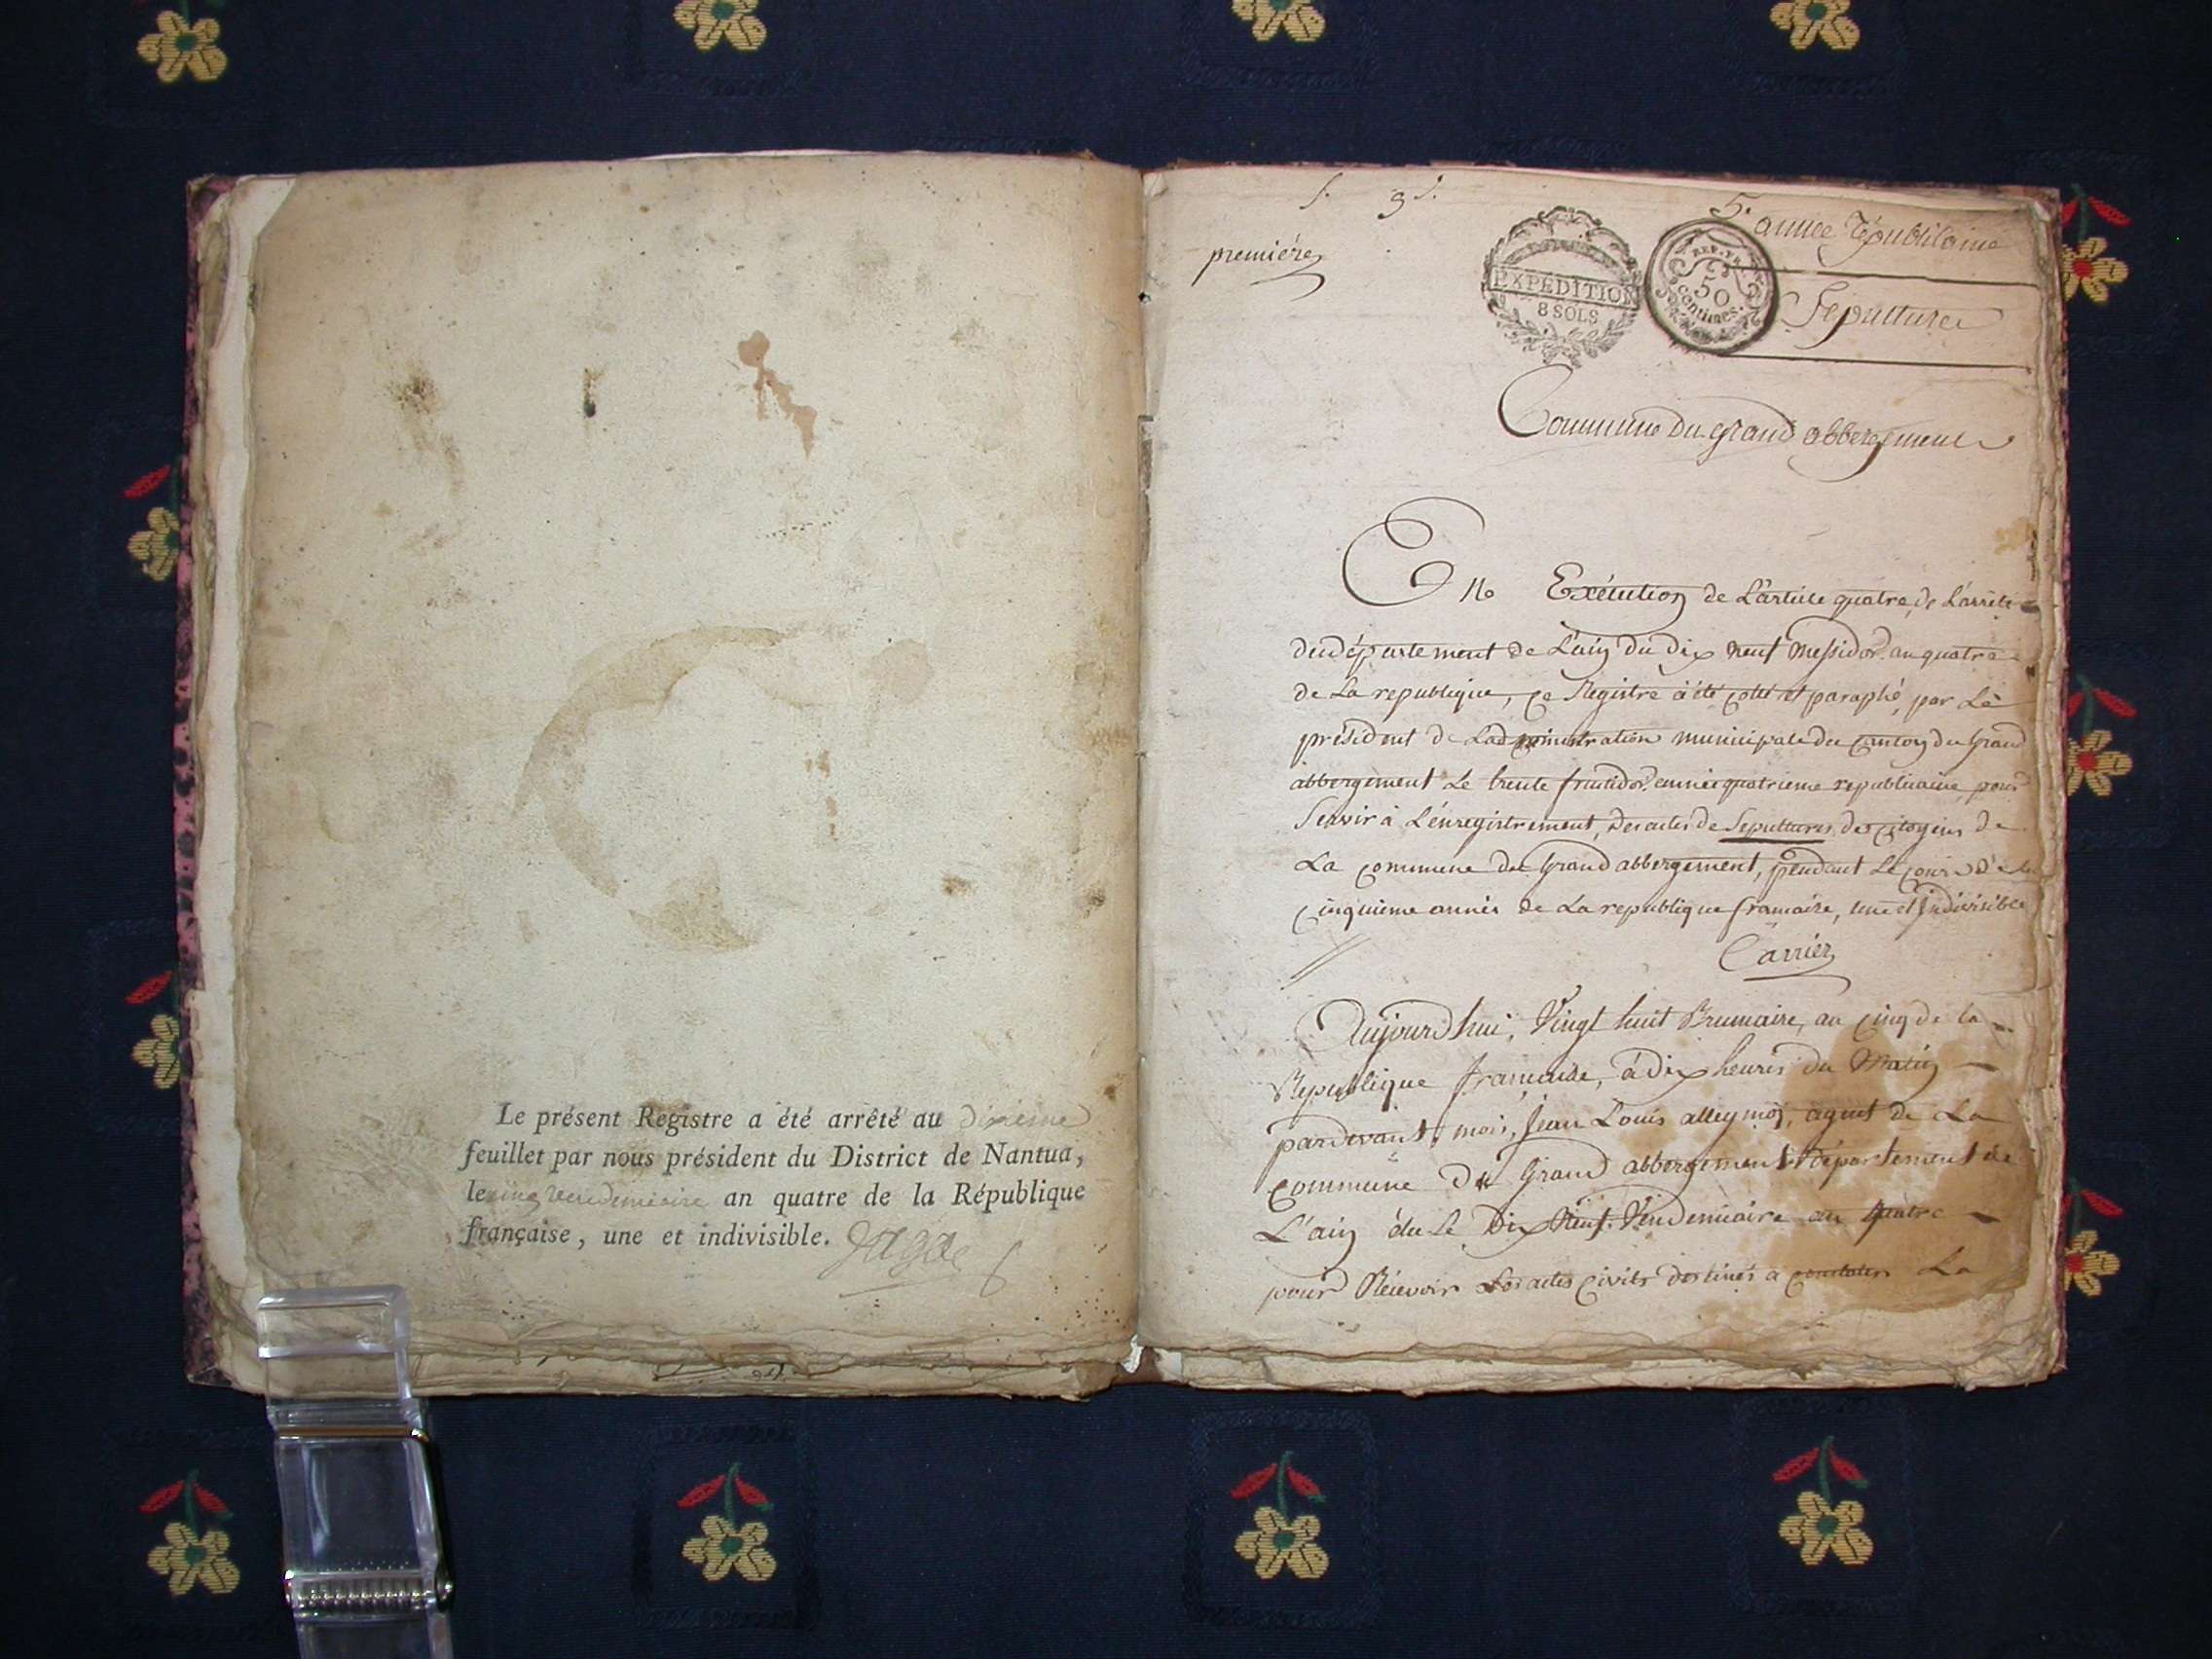 Le présent Registre a été arrêté au dixieme
feuillet par nous président du District de Nantua,
le cinq vendemiaire an quatre de la République
française, une et indivisible.
premiére
EXPEDITION
8 SOLS
REP. FRA.
50
centimes.
5.e année Républicaine
Sepulture
Commune du grand abbergement
En Exécution de L'article quatre, de L'arrêté
du département de L'ain du dix neuf Messidor an quatre
de La republique, ce Registre à été coté et paraphé, par Le
président de Ladministration municipale du canton du Grand
abbergement Le trente fructidor année quatrieme republicaine, pour
Servir à L'énregistrement, des actes de Sepultures des citoyens de
La commune du Grand abbergement, pendant Le cours de la
cinquieme année de La republique francaise, une et Indivisible
Carrier
Aujourdhui, Vingt huit Brumaire, an cinq de la
Republique francaise, à dix heures du Matin
pardevant, mois, Jean Louis, agent de La
commune du Grand abbergement département de
L'ain élu Le Dix Neuf Vendemiaire an quatre
pour Récevoir Les actes civils destinés a constater La